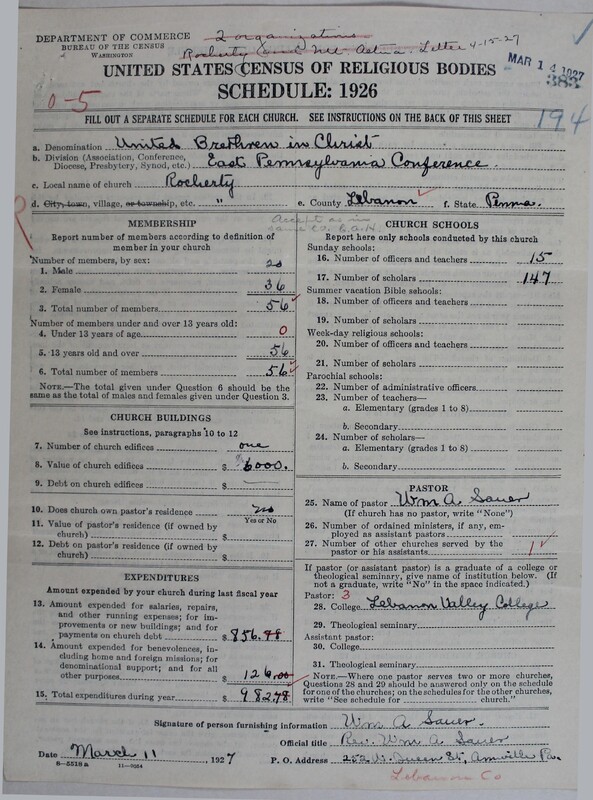 DEPARTMENT OF COMMERCE
BUREAU OF THE CENSUS
WASHINGTON
2 organizations
Rocherty and Mt. Aetna. Letter 4-15-27
MAR 14 1927
383
UNITED STATES CENSUS OF RELIGIOUS BODIES
SCHEDULE: 1926
0-5
FILL OUT A SEPARATE SCHEDULE FOR EACH CHURCH. SEE INSTRUCTIONS ON THE BACK OF THIS SHEET
194
a. Denomination United Brethren in Christ
b. Division (Association, Conference, Diocese, Presbytery, Synod, etc.) East Pennsylvania Conference.
c. Local name of church Rocherty
d. City, town, village, or township, etc. " e. County Lebanon f. State Penna.
R
Accept as in
MEMBERSHIP
Report number of members according to definition of
member in your church
Number of members, by sex:
1. Male 20
2. Female 36
3. Total number of members 56
Number of members under and over 13 years old:
4. Under 13 years of age 0
5. 13 years old and over 56
6. Total number of members 56
NOTE.—The total given under Question 6 should be
the same as the total of males and females given under Question 3.
CHURCH BUILDINGS
See instructions, paragraphs 10 to 12
7. Number of church edifices one
8. Value of church edifices $ 6000.
9. Debt on church edifices $
10. Does church own pastor's residence? no
Yes or No
11. Value of pastor's residence (if owned by
church) $
12. Debt on pastor's residence (if owned by
church) $
EXPENDITURES
Amount expended by your church during last fiscal year
13. Amount expended for salaries, repairs,
and other running expenses; for im-
provements or new buildings; and for
payments on church debt $ 856.78
14. Amount expended for benevolences, in-
cluding home and foreign missions; for
denominational support; and for all
other purposes $ 126.00
15. Total expenditures during year $ 982.78
CHURCH SCHOOLS
Report here only schools conducted by this church
Sunday schools:
16. Number of officers and teachers 15
17. Number of scholars 147
Summer vacation Bible schools:
18. Number of officers and teachers
19. Number of scholars
Week-day religious schools:
20. Number of officers and teachers
21. Number of scholars
Parochial schools:
22. Number of administrative officers
23. Number of teachers—
a. Elementary (grades 1 to 8)
b. Secondary
24. Number of scholars—
a. Elementary (grades 1 to 8)
b. Secondary
PASTOR
25. Name of pastor Wm A Sauer
(If church has no pastor, write "None")
26. Number of ordained ministers, if any, em-
ployed as assistant pastors
27. Number of other churches served by the
pastor or his assistants 1
If pastor (or assistant pastor) is a graduate of a college or
theological seminary, give name of institution below. (If
not a graduate, write "No" in the space indicated.)
Pastor: 3
28. College Lebanon Valley College
29. Theological seminary
Assistant pastor:
30. College
31. Theological seminary
NOTE.—Where one pastor serves two or more churches,
Questions 28 and 29 should be answered only on the schedule
for one of the churches; on the schedules for the other churches,
write "See schedule for church."
Signature of person furnishing information Wm A Sauer.
Official title Rev. Wm A Sauer
Date March 11, 1927 P. O. Address 252 W. Queen St, Annville Pa.
8-5518a 11-9564
Lebanon Co